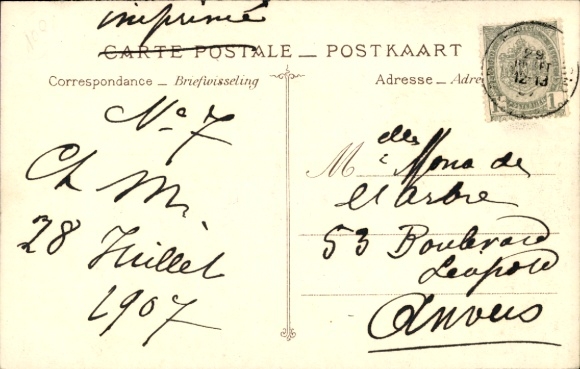 imprimé
CARTE POSTALE — POSTKAART
Correspondance — Briefwisseling
Adresse — Adre
No 7
Ch Mi
28 Juillet
1907
Melle Mona de
l'Arbre
53 Boulevard
Leopold
Anvers